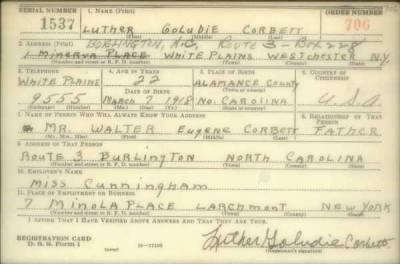 SERIAL NUMBER 1. NAME (Print) ORDER NUMBER
1537 LUTHER GOLUDIE CORBETT 706
(First) (Middle) (Last)
2. ADDRESS (Print) BURLINGTON, N.C. ROUTE 3-BOX 228
1 MINERVA PLACE WHITE PLAINS WESTCHESTER N.Y.
(Number and street or R. F. D. number) (Town) (County) (State)
3. TELEPHONE 4. AGE IN YEARS 5. PLACE OF BIRTH 6. COUNTRY OF CITIZENSHIP
WHITE PLAINS 22 ALAMANCE COUNTY
DATE OF BIRTH (Town or county)
9555 MARCH 7 1918 NO. CAROLINA U.S.A
(Exchange) (Number) (Mo.) (Day) (Yr.) (State or country)
7. NAME OF PERSON WHO WILL ALWAYS KNOW YOUR ADDRESS 8. RELATIONSHIP OF THAT PERSON
MR. WALTER EUGENE CORBETT FATHER
(Mr., Mrs., Miss) (First) (Middle) (Last)
9. ADDRESS OF THAT PERSON
ROUTE 3 BURLINGTON NORTH CAROLINA
(Number and street or R. F. D. number) (Town) (County) (State)
10. EMPLOYER'S NAME
MISS CUNNINGHAM
11. PLACE OF EMPLOYMENT OR BUSINESS
7 MINOLA PLACE LARCHMONT NEW YORK
(Number and street or R. F. D. number) (Town) (County) (State)
I AFFIRM THAT I HAVE VERIFIED ABOVE ANSWERS AND THAT THEY ARE TRUE.
REGISTRATION CARD
D. S. S. Form 1 Luther Goludie Corbett
(Registrant's signature)